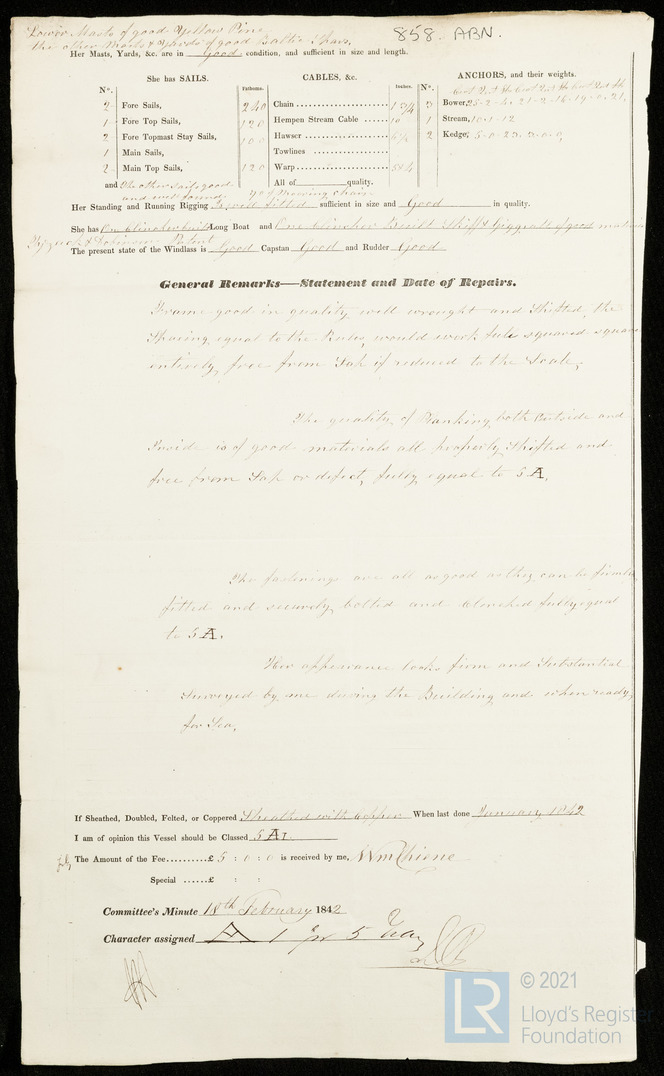 858 ABN.
Lower Masts of good Yellow Pine
the other Masts & Yards of good Baltic Spars,
Her Masts, Yards, &c. are in Good condition, and sufficient in size and length.
She has SAILS.
CABLES, &c.
ANCHORS, and their weights.
N°.
Fathoms.
Inches.
N°.
2 Fore Sails,
240 Chain
1 3/4
3 Bower,
1 Fore Top Sails,
120 Hempen Stream Cable
10
1 Stream, 10-1-12
2 Fore Topmast Stay Sails,
100 Hawser
2 Kedge,
1 Main Sails,
Towlines
2 Main Top Sails,
120 Warp
All of quality.
and The other Sails good
and well found
90 of Mooring Chain
Her Standing and Running Rigging fitted sufficient in size and Good in quality.
She has One Clincher built Long Boat and One Clincher Built Skiff & Gig all of good materials
Patent
The present state of the Windlass is Good Capstan Good and Rudder Good
General Remarks—Statement and Date of Repairs.
Frame good in quality well wrought and Shifted, the
Spacing equal to the Rules, would work full squared square
entirely free from Sap if reduced to the Scale,
The quality of Planking both Outside and
Inside is of good materials all properly Shifted and
free from Sap or defect, fully equal to 5 A.
The fastenings are all as good as they can be firmly
fitted and securely bolted and Clenched fully equal
to 5 A.
Her appearance looks firm and Substantial
Surveyed by me during the Building and when ready
for Sea,
If Sheathed, Doubled, Felted, or Coppered Sheathed with Copper When last done January 1842
I am of opinion this Vessel should be Classed 5 A1
The Amount of the Fee.........£ 5 : 0 : 0 is received by me, Wm Chiene
Special ......£ : :
Committee's Minute 18th February 1842
Character assigned A 1 for 5 Years
© 2021
LR
Lloyd's Register
Foundation